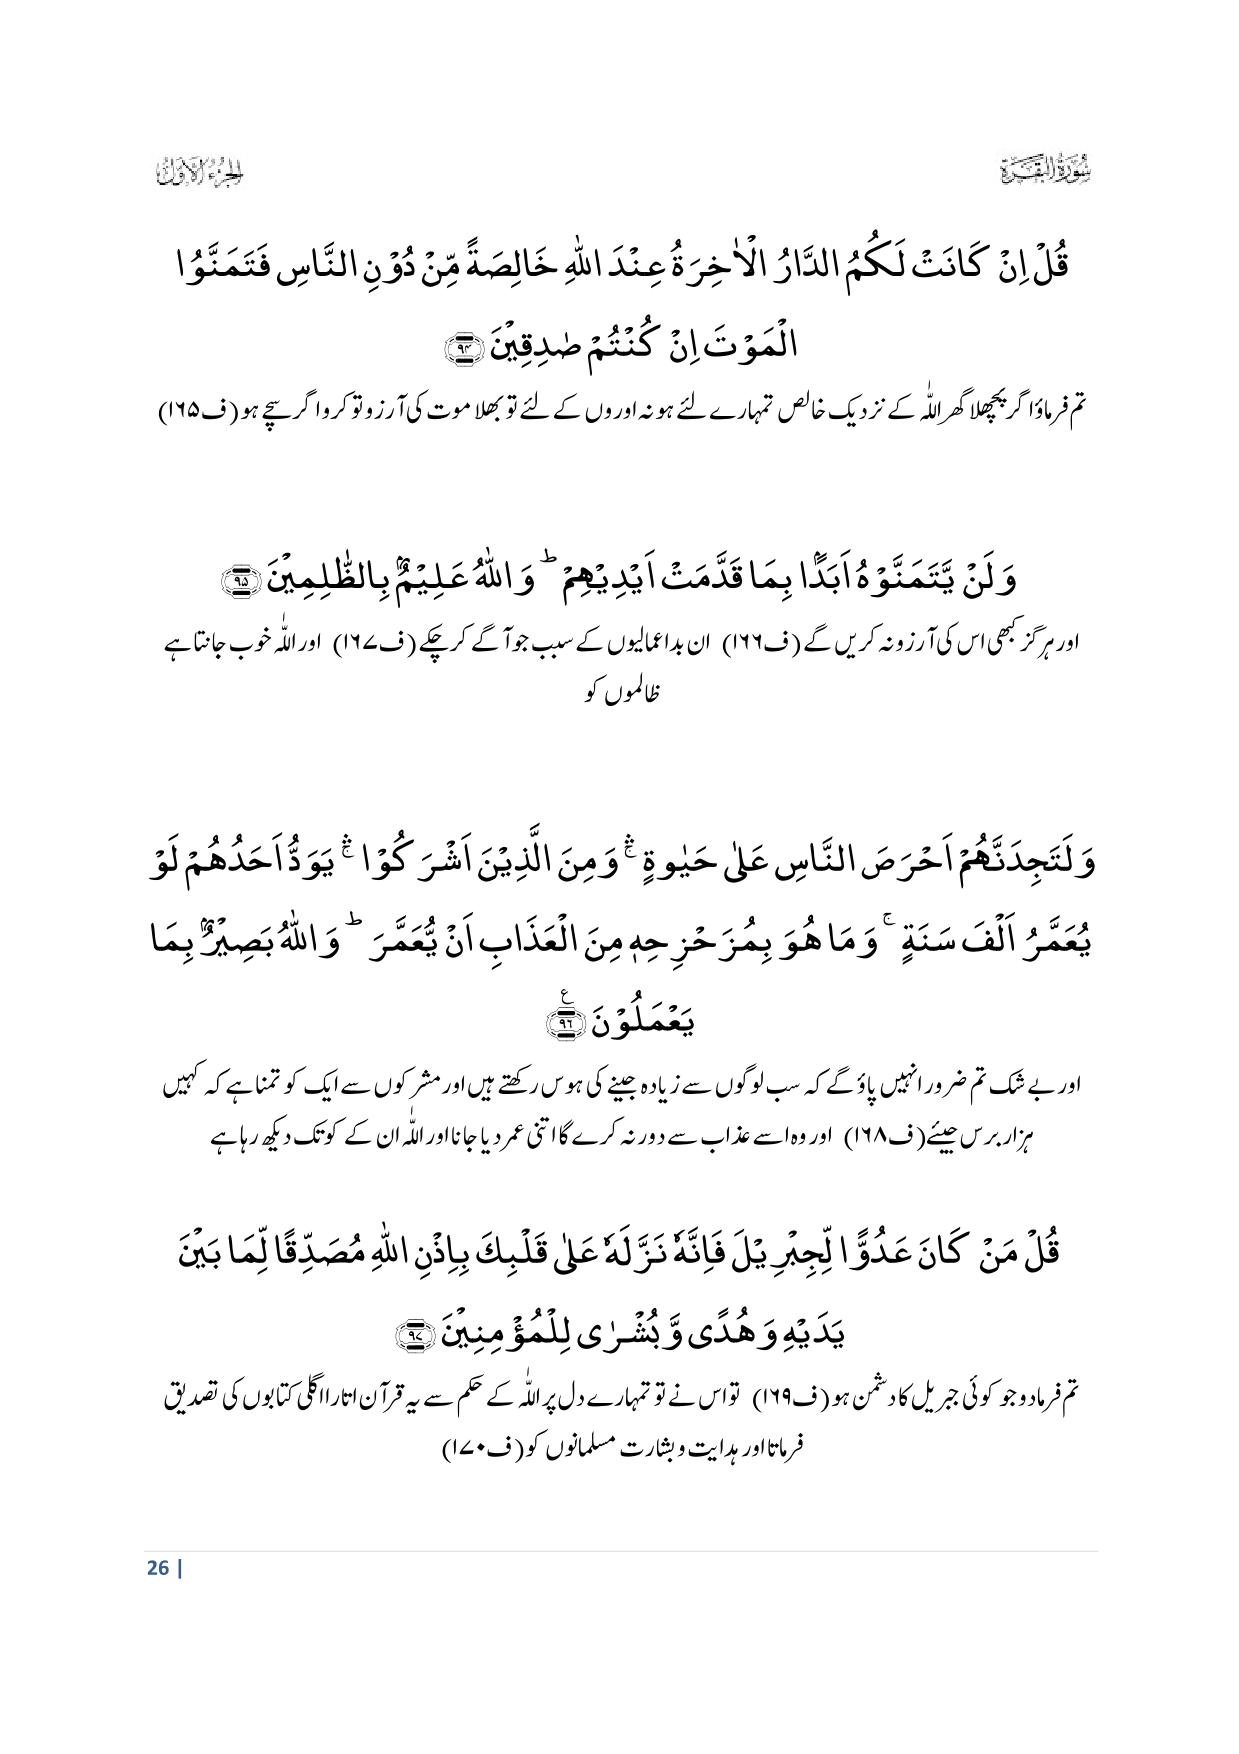 سُوْرَةُ الْبَقَرَة
الجزء الاول
قُلْ اِنْ كَانَتْ لَكُمُ الدَّارُ الْاٰخِرَةُ عِنْدَ اللّٰهِ خَالِصَةً مِّنْ دُوْنِ النَّاسِ فَتَمَنَّوُا
الْمَوْتَ اِنْ كُنْتُمْ صٰدِقِيْنَ ﴿۹۴﴾
تم فرماؤ اگر پچھلا گھر اللّٰہ کے نزدیک خالص تمہارے لئے ہو نہ اوروں کے لئے تو بھلا موت کی آرزو تو کرو اگر سچے ہو (ف۱۶۵)
وَلَنْ يَّتَمَنَّوْهُ اَبَدًۢا بِمَا قَدَّمَتْ اَيْدِيْهِمْ ؕ وَاللّٰهُ عَلِيْمٌۢ بِالظّٰلِمِيْنَ ﴿۹۵﴾
اور ہرگز کبھی اس کی آرزو نہ کریں گے (ف۱۶۶) ان بداعمالیوں کے سبب جو آگے کر چکے (ف۱۶۷) اور اللّٰہ خوب جانتا ہے
ظالموں کو
وَلَتَجِدَنَّهُمْ اَحْرَصَ النَّاسِ عَلٰى حَيٰوةٍ ۛۚ وَمِنَ الَّذِيْنَ اَشْرَكُوْا ۛۚ يَوَدُّ اَحَدُهُمْ لَوْ
يُعَمَّرُ اَلْفَ سَنَةٍ ۚ وَمَا هُوَ بِمُزَحْزِحِهٖ مِنَ الْعَذَابِ اَنْ يُّعَمَّرَ ؕ وَاللّٰهُ بَصِيْرٌۢ بِمَا
يَعْمَلُوْنَ ﴿۹۶﴾ ع
اور بے شک تم ضرور انہیں پاؤ گے کہ سب لوگوں سے زیادہ جینے کی ہوس رکھتے ہیں اور مشرکوں سے ایک کو تمنا ہے کہ کہیں
ہزار برس جیئے (ف۱۶۸) اور وہ اسے عذاب سے دور نہ کرے گا اتنی عمر دیا جانا اور اللّٰہ ان کے کوتک دیکھ رہا ہے
قُلْ مَنْ كَانَ عَدُوًّا لِّجِبْرِيْلَ فَاِنَّهٗ نَزَّلَهٗ عَلٰى قَلْبِكَ بِاِذْنِ اللّٰهِ مُصَدِّقًا لِّمَا بَيْنَ
يَدَيْهِ وَهُدًى وَّبُشْرٰى لِلْمُؤْمِنِيْنَ ﴿۹۷﴾
تم فرمادو جو کوئی جبریل کا دشمن ہو (ف۱۶۹) تو اس نے تو تمہارے دل پر اللّٰہ کے حکم سے یہ قرآن اتارا اگلی کتابوں کی تصدیق
فرماتا اور ہدایت و بشارت مسلمانوں کو (ف۱۷۰)
26 |